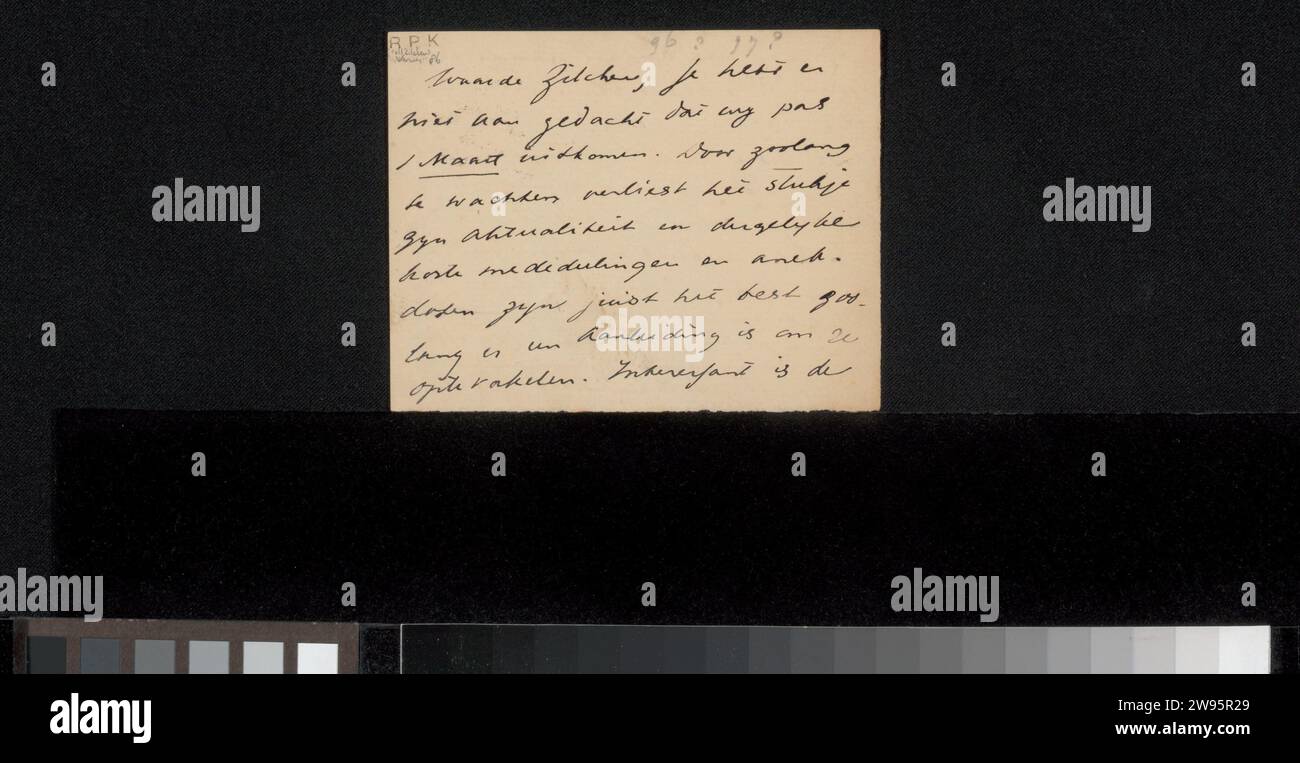 R P K
96? 97?
Waarde Zilcken, Je hebt er
niet aan gedacht dat wy pas
1 Maart uitkomen. Door zoolang
te wachten verliest het stukje
zyn aktualiteit en dergelyke
korte mededeelingen en anek-
doten zyn juist het best zoo-
lang er een aanleiding is om ze
opte rakelen. Interessant is de
alamy
a
alamy
Image ID: 2W95R29
www.alamy.com